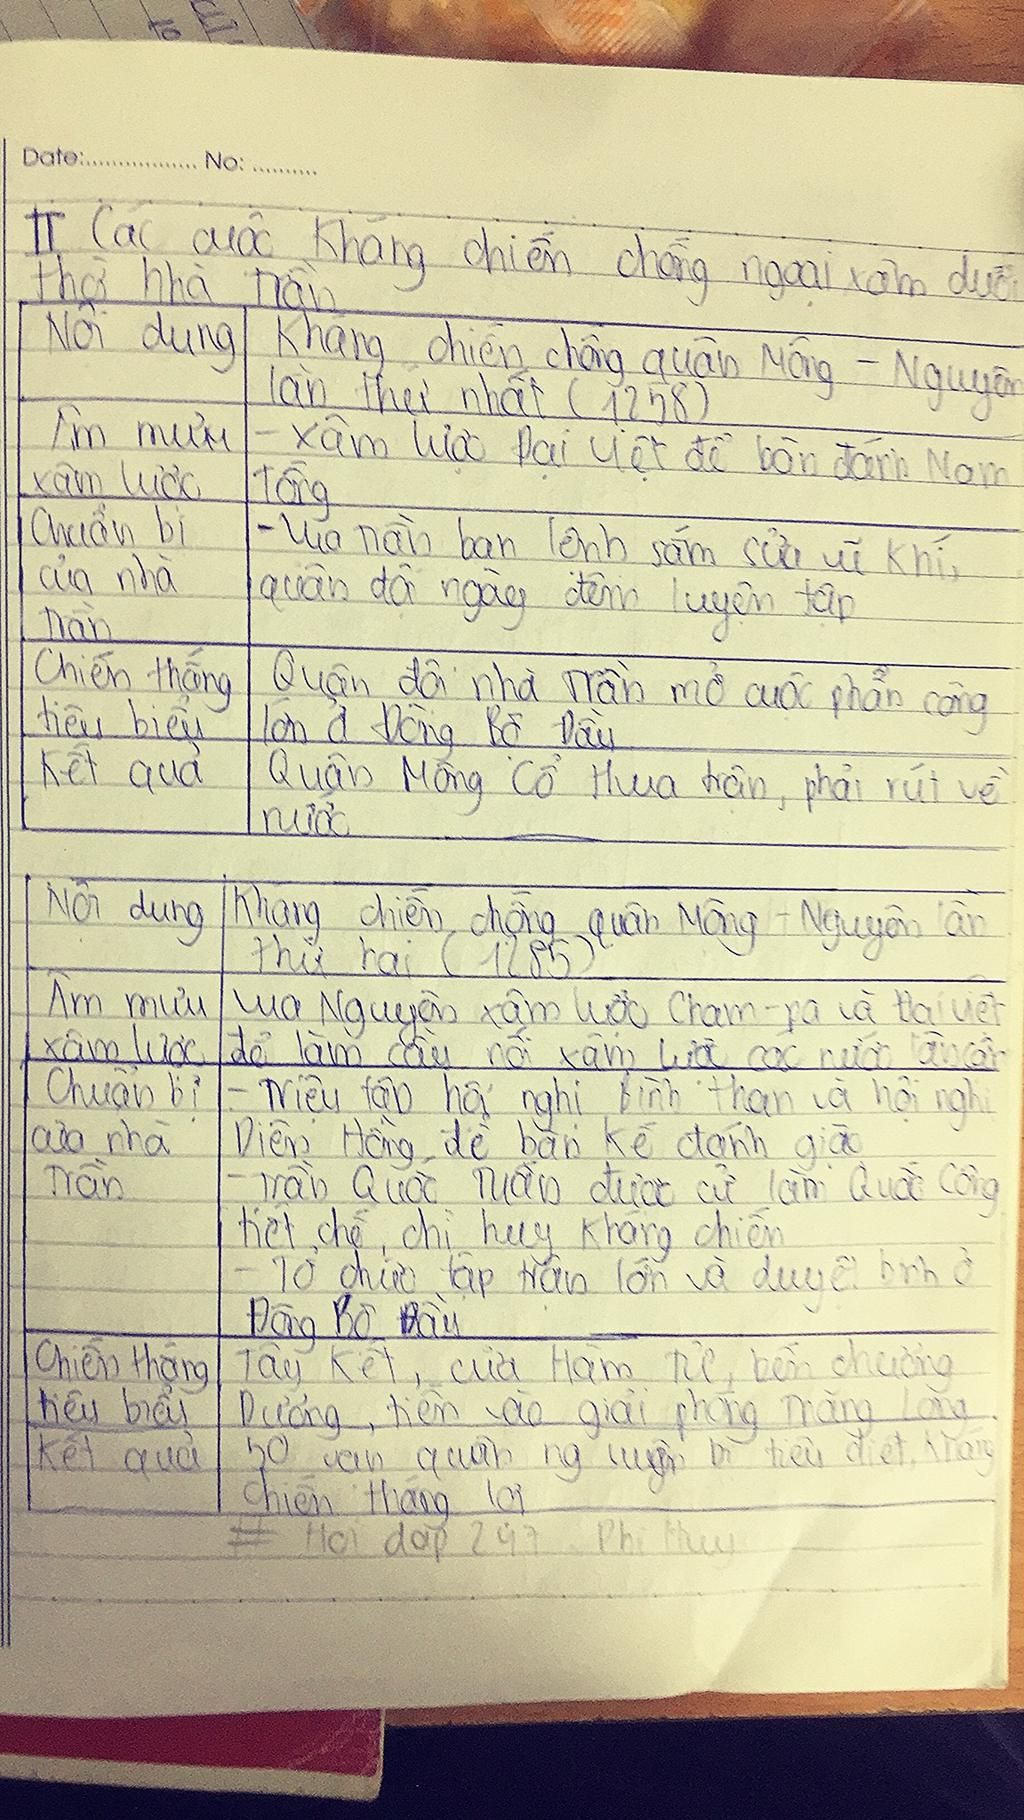 Date:.................. No: ..........
II Các cuộc Kháng chiến chống ngoại xâm dưới
thời nhà Trần
Nội dung
Kháng chiến chống quân Mông - Nguyên
lần thứ nhất (1258)
Âm mưu
xâm lược
- xâm lược Đại Việt để bàn đánh Nam
Tống
Chuẩn bị
của nhà
Trần
- Vua Trần ban lệnh sắm sửa vũ khí,
quân đội ngày đêm luyện tập
Chiến thắng
tiêu biểu
Quân đội nhà Trần mở cuộc phản công
lớn ở Đông Bộ Đầu
Kết quả
Quân Mông Cổ thua trận, phải rút về
nước
Nội dung
Kháng chiến chống quân Mông - Nguyên lần
thứ hai (1285)
Âm mưu
xâm lược
Vua Nguyên xâm lược Cham-pa và Đại Việt
để làm cầu nối xâm lược các nước lân cận
Chuẩn bị
của nhà
Trần
- Triệu tập hội nghị Bình Than và hội nghị
Diên Hồng để bàn kế đánh giặc
- Trần Quốc Tuấn được cử làm Quốc Công
tiết chế, chỉ huy kháng chiến
- Tổ chức tập trận lớn và duyệt binh ở
Đông Bộ Đầu
Chiến thắng
tiêu biểu
Tây Kết, cửa Hàm Tử, bến chương
Dương, tiến vào giải phóng Thăng Long.
Kết quả
50 vạn quân nguyên bị tiêu diệt. Kháng
chiến thắng lợi
# Hoi dap 247 Phi Huy